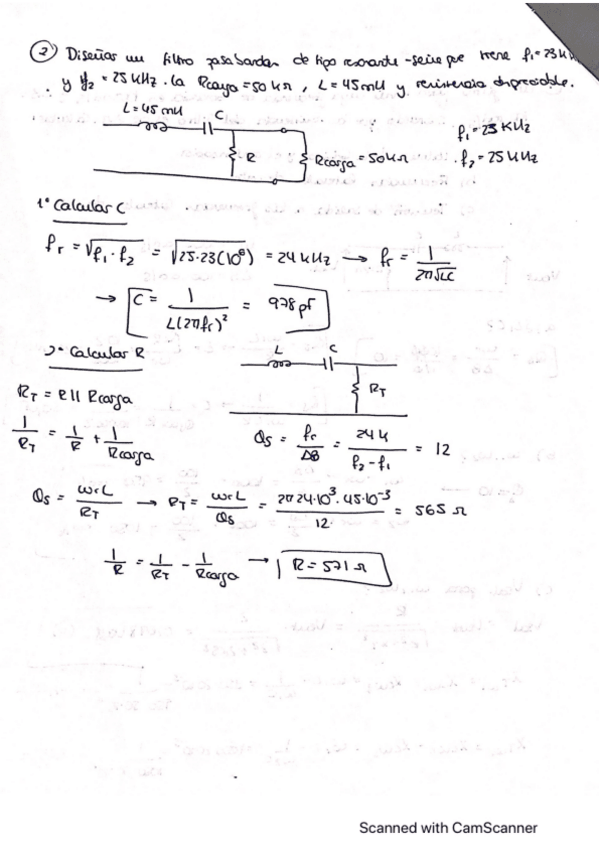 ② Diseñar un filtro pasabandas de tipo resonante-serie que tiene f₁=23 K
y f₂ = 25 KHz. la Rcarga = 50 kΩ, L = 45 mH y resistencia despreciable.
L = 45 mH C
R Rcarga = 50 kΩ
f₁ = 23 KHz
f₂ = 25 KHz
1º Calcular C
fr = √f₁·f₂ = √25·23(10⁶) = 24 kHz → fr = 1/2π√LC
→ C = 1/L(2πfr)² = 978 pF
2º Calcular R
L C
RT
RT = R || Rcarga
1/RT = 1/R + 1/Rcarga
Qs = fr/ΔB = 24k/f₂-f₁ = 12
Qs = ωrL/RT → RT = ωrL/Qs = 2π24·10³·45·10⁻³/12 = 565 Ω
1/R = 1/RT - 1/Rcarga → R = 571 Ω
Scanned with CamScanner